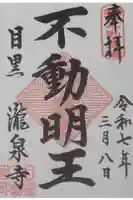 奉拝
令和七年
三月八日
不動明王
目黒
瀧泉寺